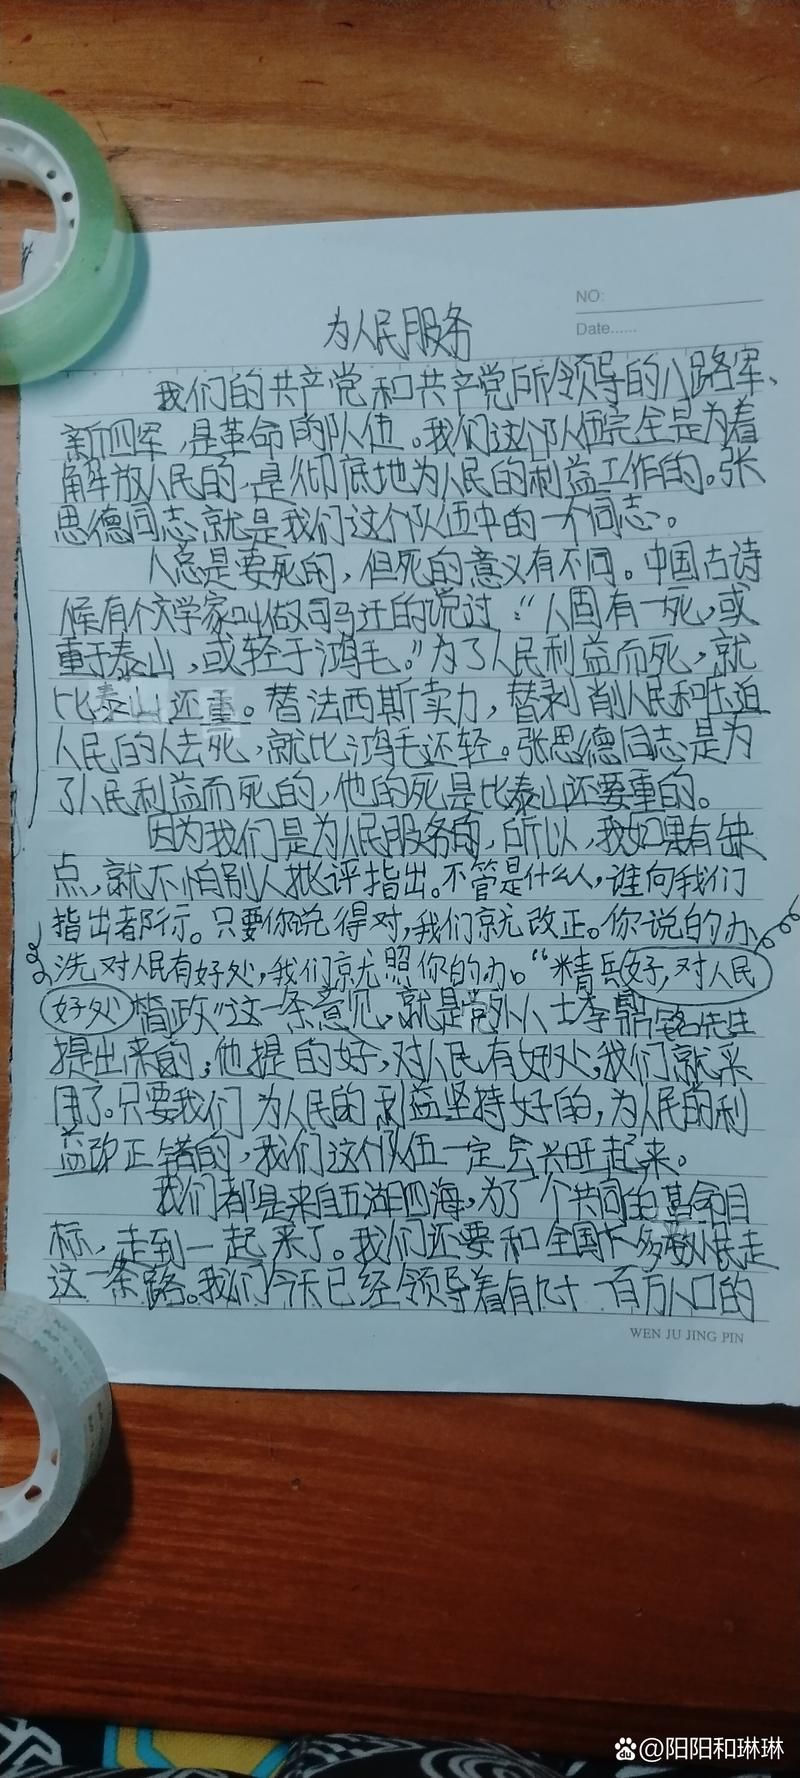 NO:
Date......
为人民服务
我们的共产党和共产党所领导的八路军、
新四军,是革命的队伍。我们这个队伍完全是为着
解放人民的,是彻底地为人民的利益工作的。张
思德同志,就是我们这个队伍中的一个同志。
人总是要死的,但死的意义有不同。中国古诗
候有个文学家叫做司马迁的说过:“人固有一死,或
重于泰山,或轻于鸿毛。”为了人民利益而死,就
比泰山还重。替法西斯卖力,替剥削人民和压迫
人民的人去死,就比鸿毛还轻。张思德同志是为
了人民利益而死的,他的死是比泰山还要重的。
因为我们是为人民服务的,所以,我如果有缺
点,就不怕别人批评指出。不管是什么人,谁向我们
指出都行。只要你说得对,我们就改正。你说的办
洗对人民有好处,我们就照你的办。“精兵好,对人民
好处简政”这一条意见,就是党外人士李鼎铭先生
提出来的;他提的好,对人民有好处,我们就采
用了。只要我们为人民的利益坚持好的,为人民的利
益改正错的,我们这个队伍一定会兴旺起来。
我们都是来自五湖四海,为了一个共同的革命目
标,走到一起来了。我们还要和全国大多数人民走
这一条路。我们今天已经领导着有九十一百万人口的
WEN JU JING PIN
@阳阳和琳琳